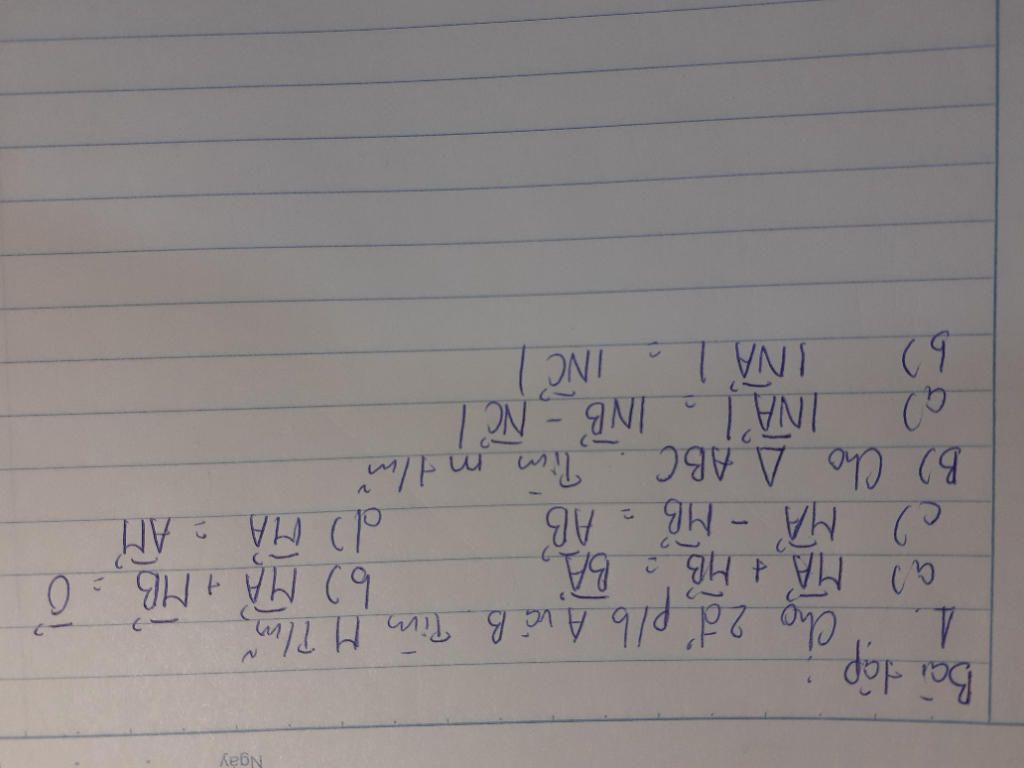 Ngày
Bài tập:
1. Cho 2đ' p/b A và B. Tìm M T/m~
a) $\overrightarrow{MA} + \overrightarrow{MB} = \overrightarrow{BA}$ b) $\overrightarrow{MA} + \overrightarrow{MB} = \overrightarrow{0}$
c) $\overrightarrow{MA} - \overrightarrow{MB} = \overrightarrow{AB}$ d) $\overrightarrow{MA} = \overrightarrow{AM}$
B) Cho Δ ABC. Tìm m t/m~
a) $|\overrightarrow{NA}| = |\overrightarrow{NB} - \overrightarrow{NC}|$
b) $|\overrightarrow{NA}| = |\overrightarrow{NC}|$